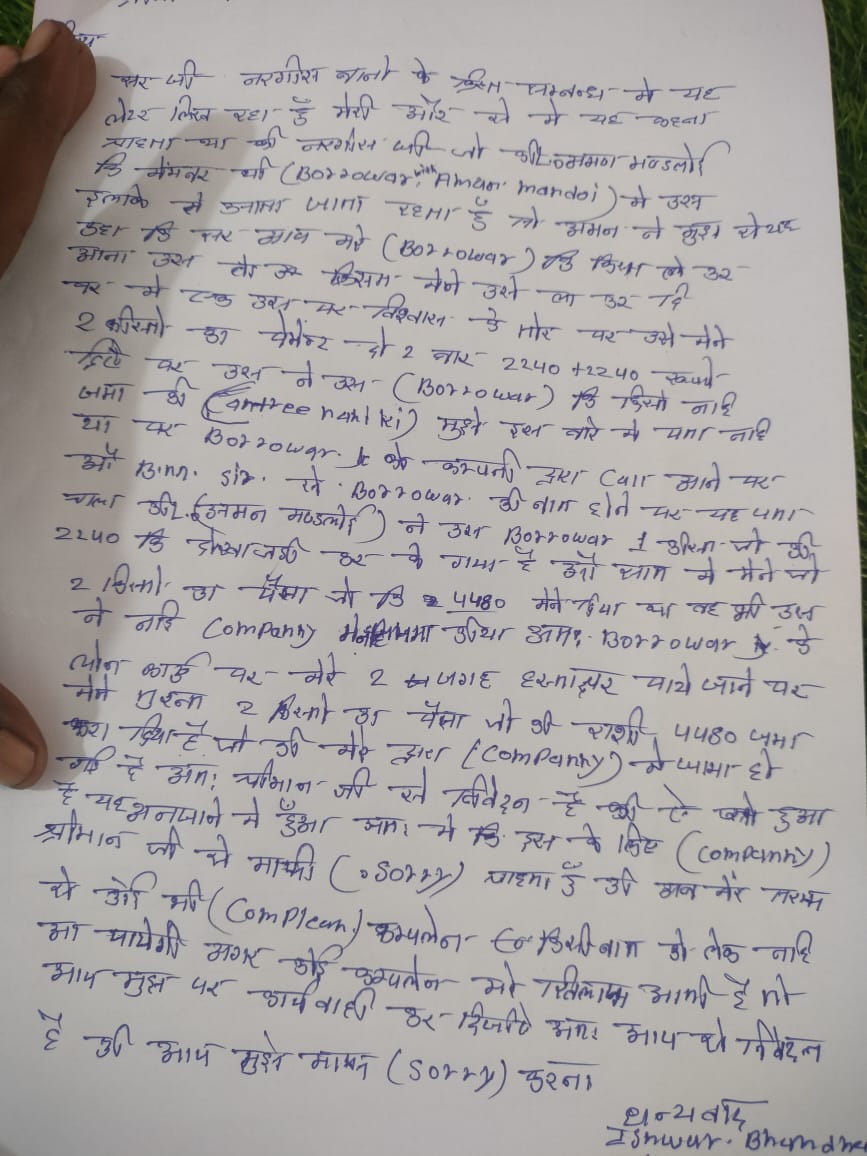 सर जी नरगीस बानो के किस्त सम्बन्ध मे यह
लेटर लिख रहा हूँ मेरी और से मे यह कहना
चाहता था की नरगीस जी जो की अमन मण्डलोई
कि मेमबर थी (Borrowar with Aman mandoi) मे उस
इलाके से आना जाता रहता हूँ तो अमन ने मुझ से यह
कहा कि सर आप मेरे (Borrowar) कि किस्त ले कर
आना उस का किस्त मेने उसे ला कर दि
पर मे एक उस पर विश्वास के तोर पर उसे मेने
2 किस्तो का पेमेंट दो 2 बार 2240 + 2240 रूपये
दिये पर उस ने उस (Borrowar) कि किस्त नाहि
जमा की मुझे इस बारे मे पता नाहि
था पर Borrowar को कम्पनी द्वारा Call आने पर
ओ B.m. Sir. से Borrowar की बात होने पर यह पता
चला की (अमन मण्डलोई) ने उस Borrowar 1 किस्त जो की
2240 कि धोखाजडी कर के गया है और साथ मे मेने जो
2 किस्तो का पैसा जो कि 4480 मेने दिया था वह भी उस
ने नाहि Companny मे जमा किया अतः Borrowar के
लोन कार्ड पर मेरे 2 जगह हस्ताक्षर पाये जाने पर
मेने तुरन्त 2 किस्तो का पैसा जो की राशी 4480 जमा
करा दिया है जो की मेरे द्वारा (Companny) मे जामा हो
गई है अतः श्रीमान जी से निवेदन है की जो हुआ
है यह अनजाने मे हुँआ अतः मे कि इस के लिए (Companny)
श्रीमान जी से माफी (Sorry) चाहता हूँ की अब मेरे तरफ
से कोई भी (Complean) कम्पलेन किसी बात को लेक नाहि
आ पायेगी अगर कोई कम्पलेन मेरे खिलाफ आती है तो
आप मुझ पर कार्यवाही कर दिजीये अतः आप से निवेदन
है की आप मुझे माफ (Sorry) करना
धन्यवाद
Eshwar. Bhundre